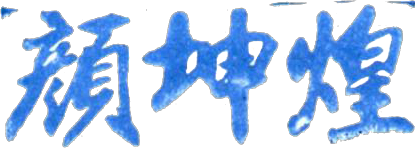 顏坤煌